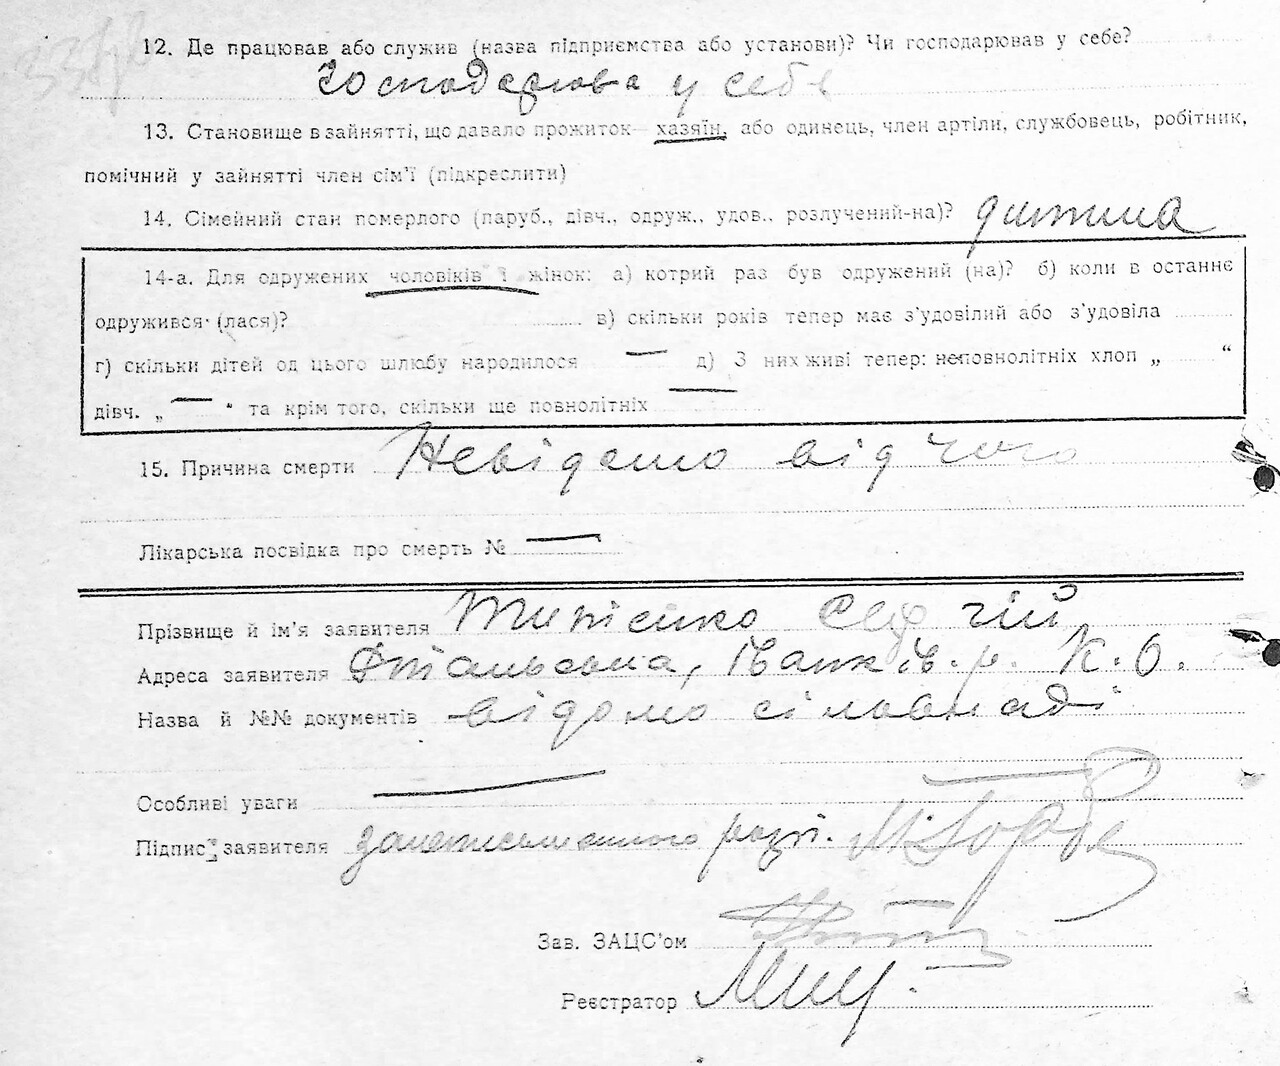 12. Де працював або служив (назва підприємства або установи)? Чи господарював у себе?
Господарював у себе
13. Становище в зайнятті, що давало прожиток— хазяїн, або одинець, член артіли, службовець, робітник,
помічний у зайнятті член сім'ї (підкреслити)
14. Сімейний стан померлого (паруб., дівч., одруж., удов., розлучений-на)? дитина
14-а. Для одружених чоловіків і жінок: а) котрий раз був одружений (на)? б) коли в останнє
одружився (лася)? в) скільки років тепер має з'удовілий або з'удовіла
г) скільки дітей од цього шлюбу народилося — д) З них живі тепер: неповнолітніх хлоп „ “
дівч. „ — “ та крім того, скільки ще повнолітніх —
15. Причина смерти Невідомо від чого
Лікарська посвідка про смерть № —
Прізвище й ім'я заявителя Сергій
Адреса заявителя Іванк ів. р. К. О.
Назва й №№ документів відомо сільраді
Особливі уваги —
Підпис заявителя за неписьменного розп.
Зав. ЗАЦС'ом
Реєстратор